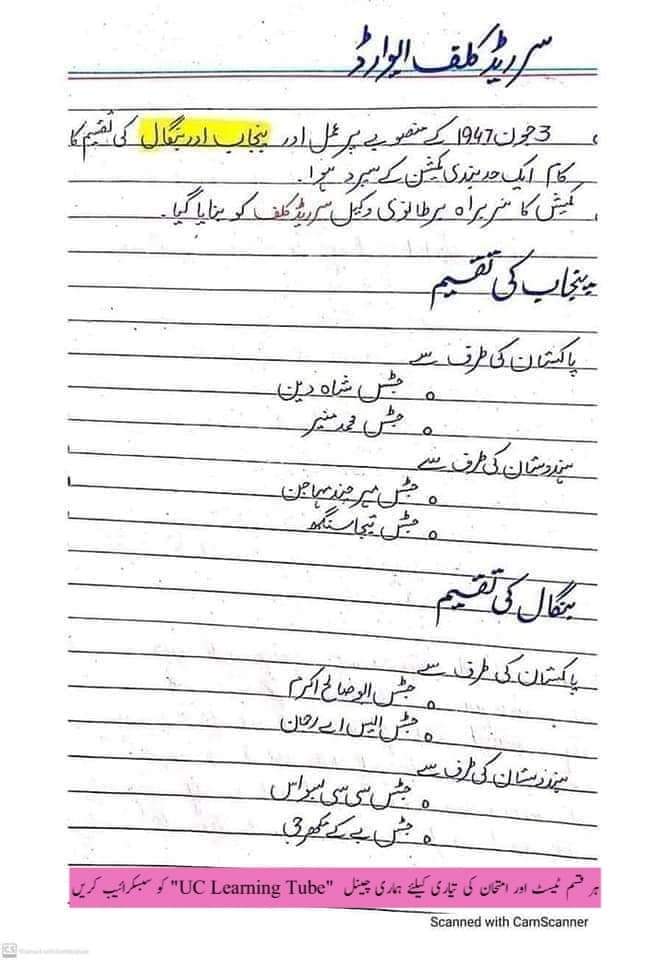 سر ریڈ کلف ایوارڈ
3 جون 1947 کے منصوبے پر عمل اور پنجاب اور بنگال کی تقسیم کا
کام ایک حد بندی کمیشن کے سپرد ہوا۔
کمیشن کا سربراہ برطانوی وکیل سر ریڈ کلف کو بنایا گیا۔
پنجاب کی تقسیم
پاکستان کی طرف سے
جسٹس شاہ دین
جسٹس محمد منیر
ہندوستان کی طرف سے
جسٹس میر چند مہاجن
جسٹس تیجا سنگھ
بنگال کی تقسیم
پاکستان کی طرف سے
جسٹس ابو صالح اکرم
جسٹس ایس اے رحمان
ہندوستان کی طرف سے
جسٹس سی سی بسواس
جسٹس بی کے مکھرجی
ہر قسم ٹیسٹ اور امتحان کی تیاری کیلئے ہماری چینل "UC Learning Tube" کو سبسکرائیب کریں
Scanned with CamScanner
CS Scanned with CamScanner